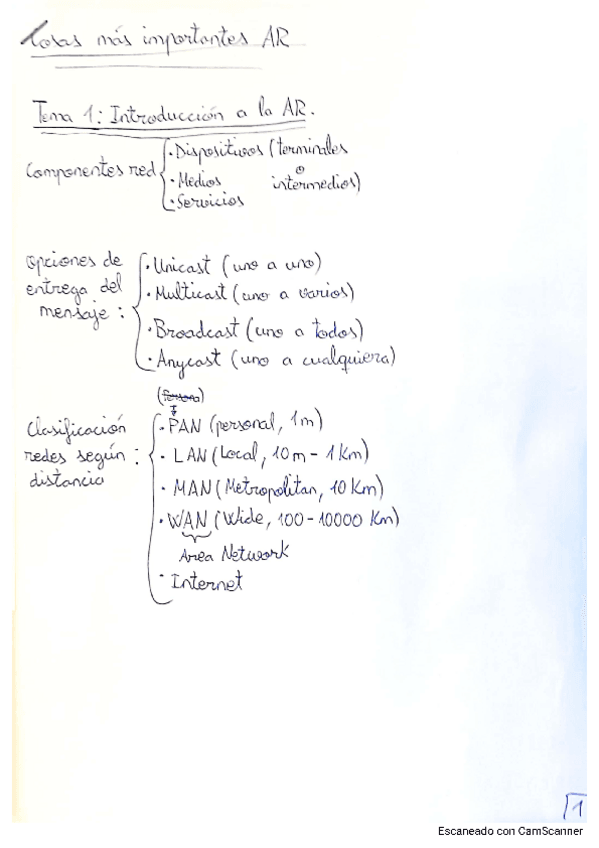 Cosas más importantes AR
Tema 1: Introducción a la AR.
Componentes red
· Dispositivos (terminales
o
· Medios intermedios)
· Servicios
Opciones de
entrega del
mensaje:
· Unicast (uno a uno)
· Multicast (uno a varios)
· Broadcast (uno a todos)
· Anycast (uno a cualquiera)
Clasificación
redes según:
distancia
(persona)
· PAN (personal, 1m)
· LAN (Local, 10m - 1 Km)
· MAN (Metropolitan, 10 Km)
· WAN (Wide, 100 - 10000 Km)
Area Network
· Internet
1
Escaneado con CamScanner